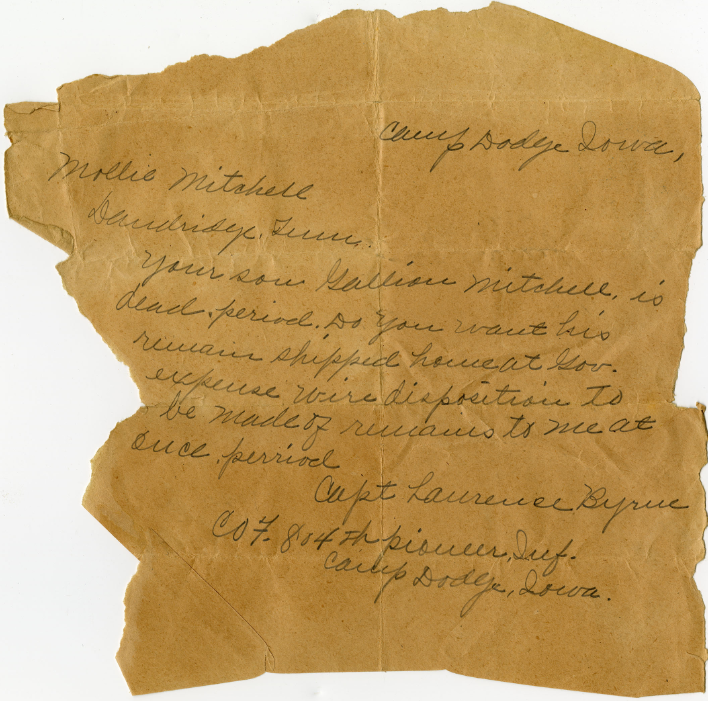 Camp Dodge Iowa,
Mollie Mitchell
Dandridge, Tenn.
Your son Gallion Mitchell, is
dead, period. Do you want his
remain shipped home at Gov.
expense wire disposition to
be made of remains to me at
once. perriod
Capt Laurence Byrne
CO F. 804th pioneer, Inf.
Camp Dodge, Iowa.